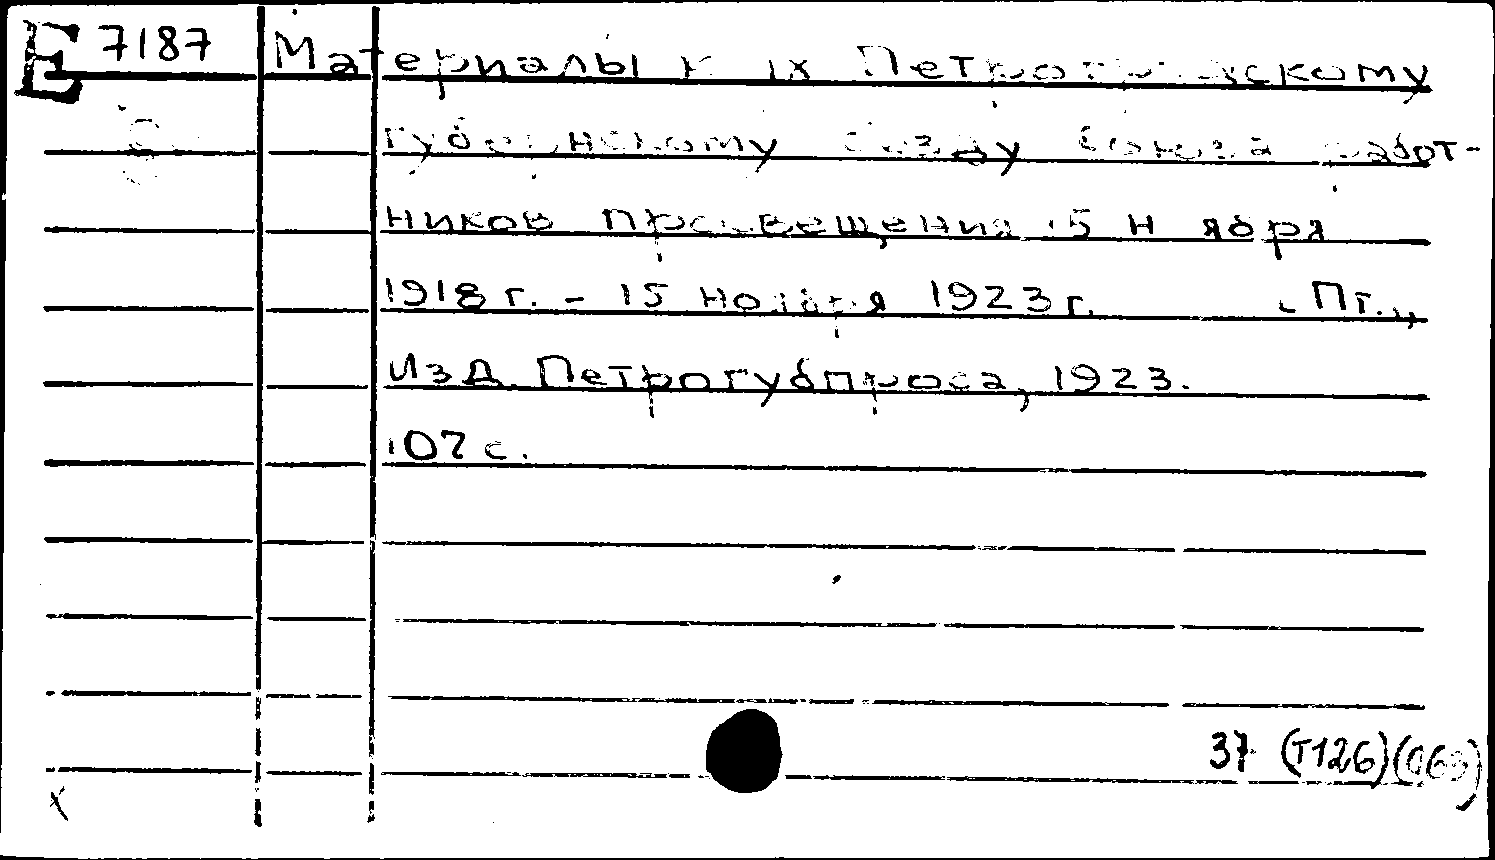 E 7187 Материалы к IX Петроградскому
губернскому съезду союза работ-
ников просвещения 15 ноября
1918 г. - 15 ноября 1923 г. Пг.,
Изд. Петрогубпроса, 1923.
107 с.
37 (Т126)(063)